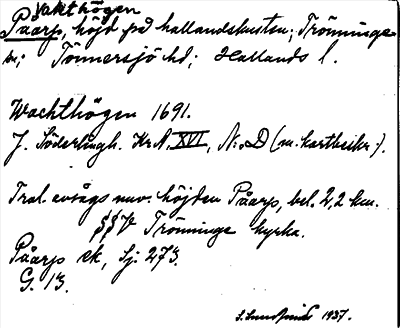 Vakthögen
Påarp, höjd på hallandskusten; Trönninge
sn; Tönnersjö hd; Hallands l.
Wachthögen 1691.
J. Söderlingh. Kr.A. XVI, N:o D (m. kartbeskr.).
Trol. avsågs nuv. höjden Påarp, bel. 2,2 km.
V Trönninge kyrka.
Påarp ek, Sj. 273.
G. 13.
1937.